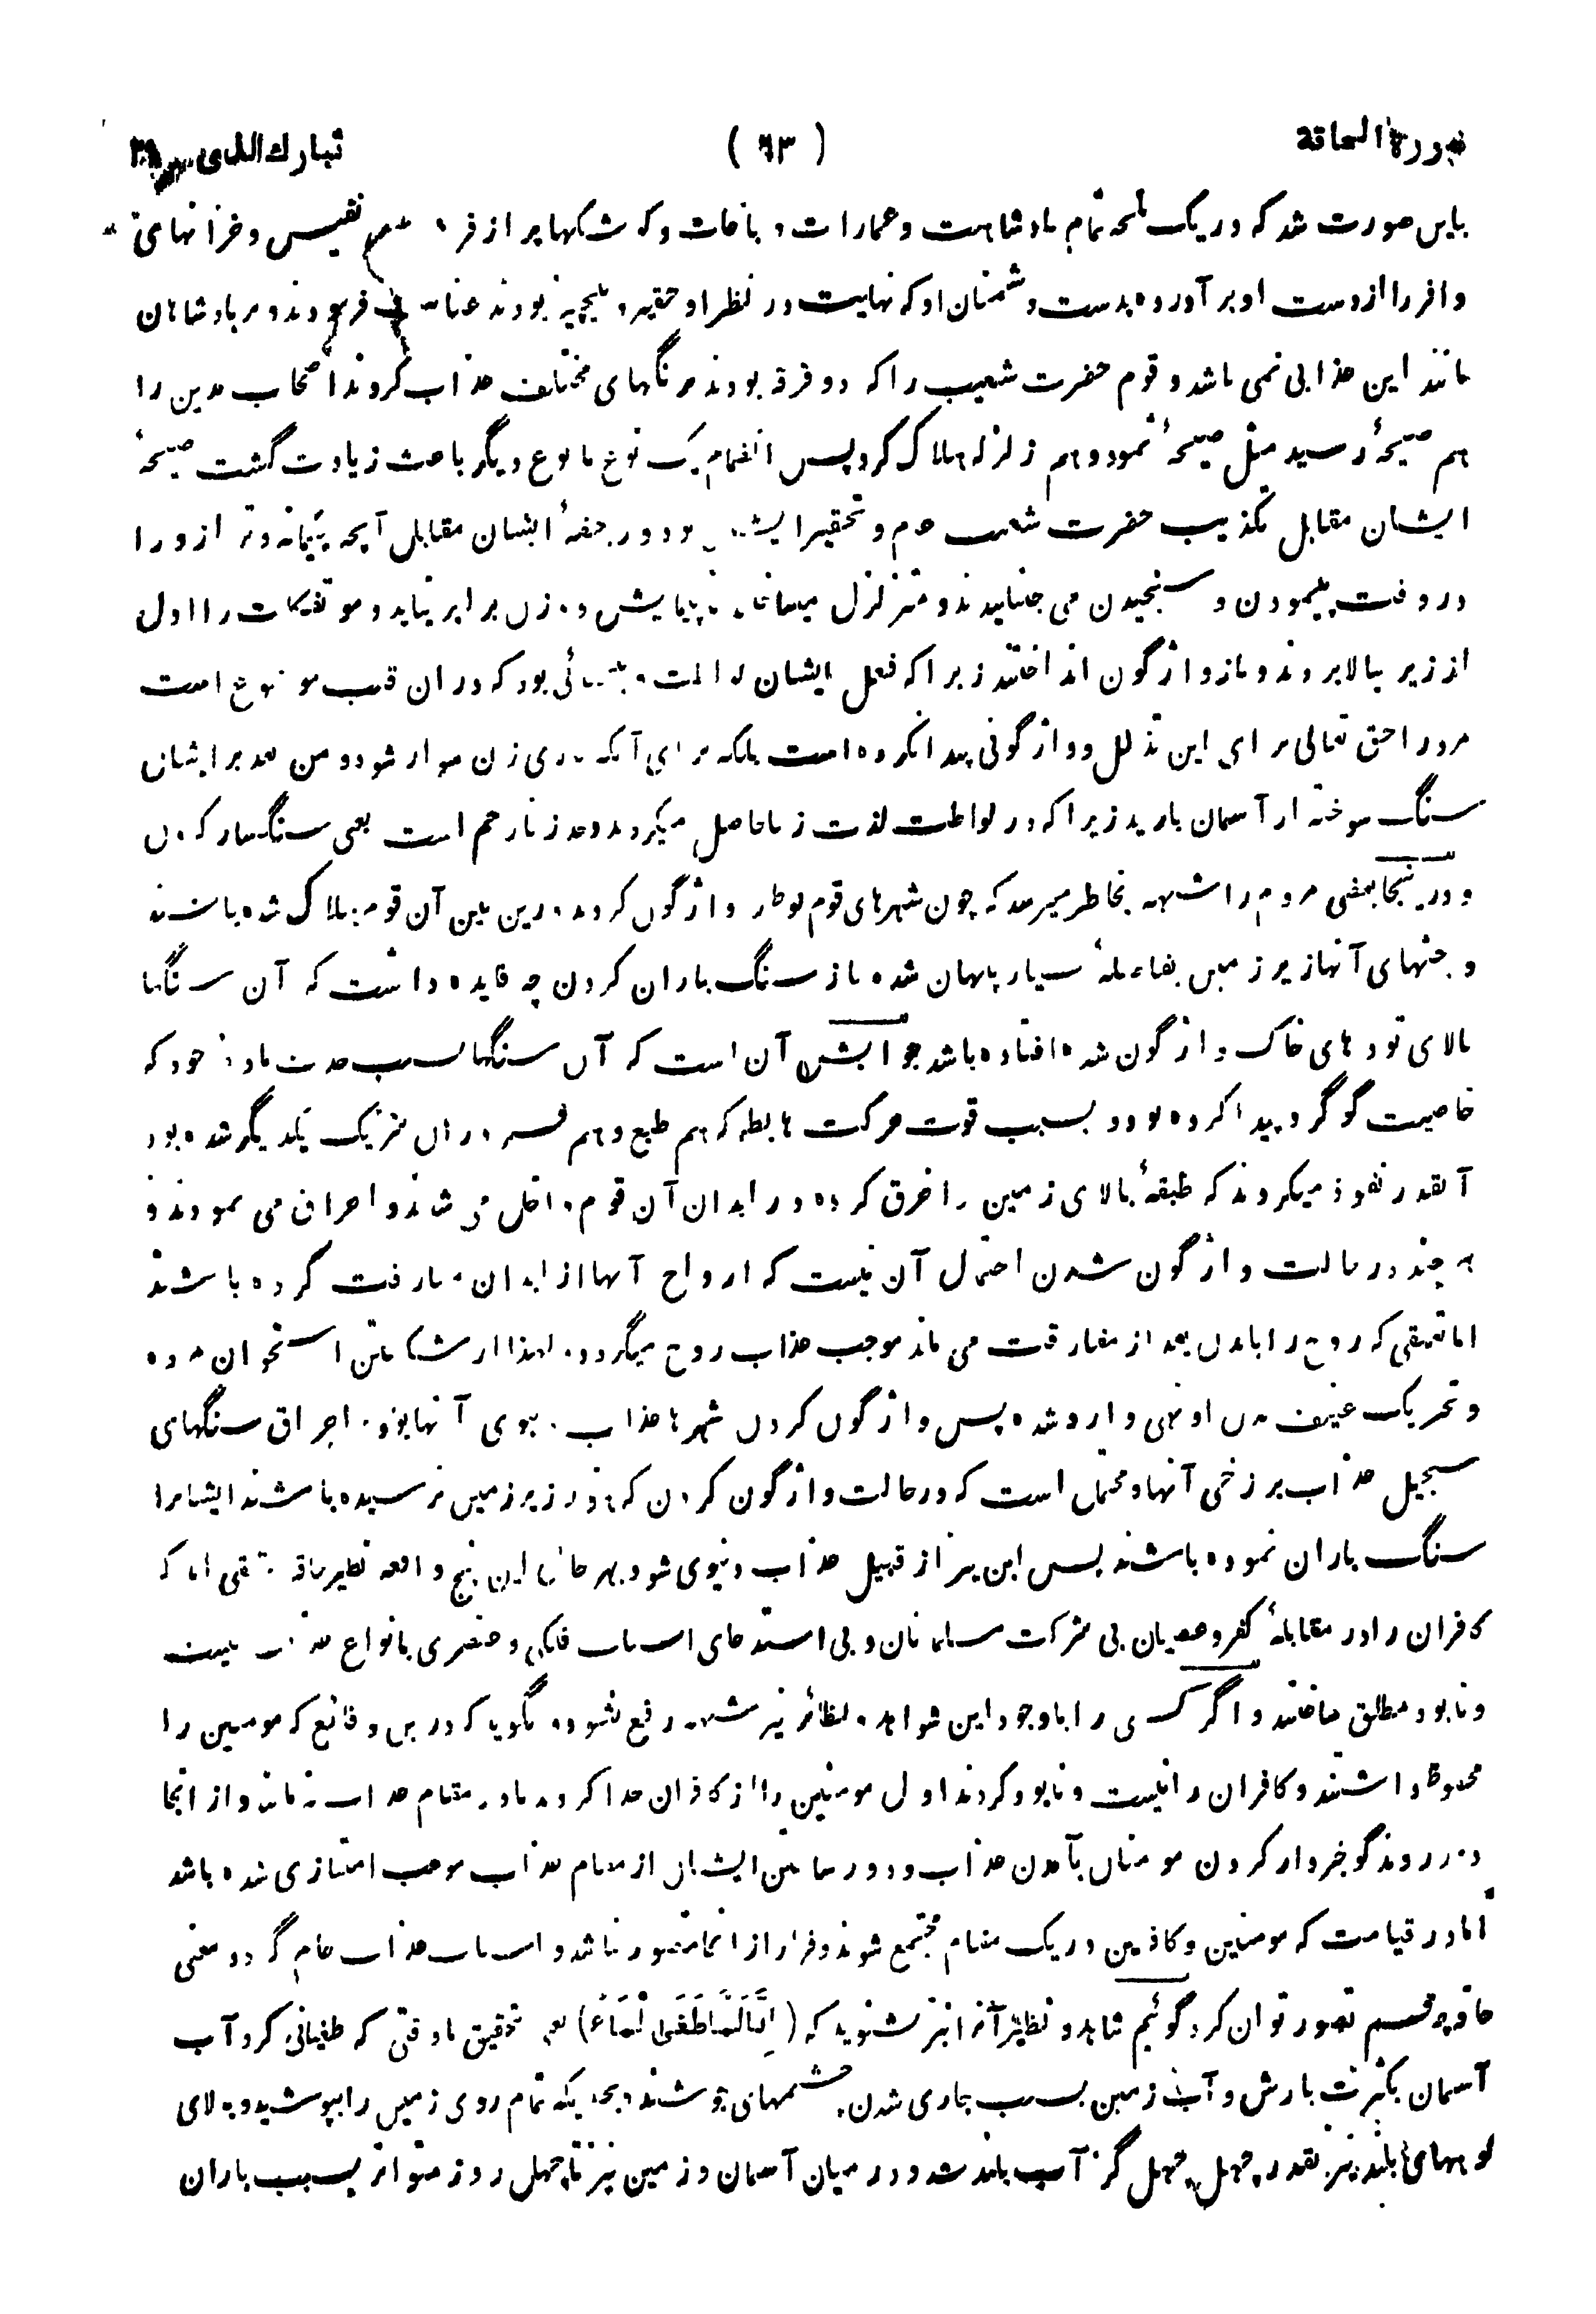 سورة الحاقة
( ٦٣ )
تبارك الذى ٢٩
باین صورت شد که در یک لمحه تمام بادشاهت و عمارات و باغات و که شکها پر از فر نفیس و خزانهای
وافر را از دست او بر آورده بدست دشمنان او که نهایت در نظر او حقیر و هیچپیز بودند فرمودند و بر بادشاهان
مانند این عذابی نمی باشد و قوم حضرت شعیب را که دو فرقه بودند برنگهای مختلف عذاب کردند اصحاب مدین را
هم صیحهٔ رسید مثل صیحهٔ ثمود و هم زلزله هلاک کرد پس انضمام یک نوع با نوع دیگر باعث زیادت گشت صیحهٔ
ایشان مقابل تکذیب حضرت شعیب و تحقیر ایشان بود و رجفهٔ ایشان مقابل آنچه پیمانه و ترازو را
در وقت پیمودن و سنجیدن می جنبانیدند و متزلزل میساختند تا پیمایش و وزن برابر نیاید و موتفکات را اول
از زیر ببالا بردند و باز واژگون انداختند زیرا که فعل ایشان لواطت بود که دران قلب موضوع است
مرد را حق تعالی برای این تذلل و واژگونی پیدا نکرده است بلکه برای آنکه بر روی زن سوار شود و من بعد بر ایشان
سنگ سوخته از آسمان بارید زیرا که در لواطت لذت زنا حاصل میکردند و حد زنا رجم است یعنی سنگسار کردن
و در اینجا بعضی مردم را شبهه بخاطر میرسد که چون شهرهای قوم لوط را واژگون کردند درین بین آن قوم هلاک شده باشند
و جثهای آنها زیر زمین بفاصلهٔ بسیار پنهان شده باز سنگ باران کردن چه فایده داشت که آن سنگها
بالای تودهای خاک واژگون شده افتاده باشد جوابش آن است که آن سنگها بسبب حدت مادهٔ خود که
خاصیت گوگرد پیدا کرده بود و بسبب قوت حرکت هابطه که هم طبع و هم قسر دران شریک یکدیگر شده بود
آنقدر نفوذ میکردند که طبقهٔ بالای زمین را خرق کرده در ابدان آن قوم داخل می شدند و احراق می نمودند و
هر چند در حالت واژگون شدن احتمال آن نیست که ارواح آنها از ابدان مفارقت کرده باشند
اما تعلقی که روح را با بدن بعد از مفارقت می ماند موجب عذاب روح میگردد لهذا از شکستن استخوان مرده
و تحریک عنیف بدن او نهی وارد شده پس واژگون کردن شهرها عذاب دنیوی آنها بود و احراق سنگهای
سجیل عذاب برزخی آنها و محتمل است که در حالت واژگون کردن که هنوز زیر زمین نرسیده باشند ایشانرا
سنگ باران نموده باشند پس این نیز از قبیل عذاب دنیوی شود بهر حال این پنج واقعه نظیر حاقهٔ حقیقی اند که
کافران را در مقابلهٔ کفر و عصیان بی شرکت مسلمانان و بی استدعای اسباب فلکی و عنصری بانواع عذاب نیست
و نابود مطلق ساختند و اگر کسی را باوجود این شواهد و نظائر نیز شبهه رفع نشود و بگوید که درین وقائع که مومنین را
محفوظ داشتند و کافران را نیست و نابود کردند اول مومنین را از کافران جدا کردند تا در مقام عذاب نمانند و از انجا
بدر روند گو خبردار کردن مومنان بآمدن عذاب و دور ساختن ایشان از مقام عذاب موجب امتیازی شده باشد
اما در قیامت که مومنین و کافرین در یک مقام مجتمع شوند و فرار از انجا متصور نباشد و اسباب عذاب عام گردد معنی
حاقه چه قسم تصور توان کرد گوئیم شاهد و نظیر آنرا نیز بشنوید که (إِنَّا لَمَّا طَغَى الْمَاءُ) یعنی تحقیق ما وقتی که طغیانی کرد آب
آسمان بکثرت بارش و آب زمین بسبب جاری شدن چشمهای جوشنده بحدیکه تمام روی زمین را بپوشید و بالای
کوههای بلند نیز بقدر چهل چهل گز آب بلند شد و در میان آسمان و زمین نیز تا چهل روز متواتر بسبب باران